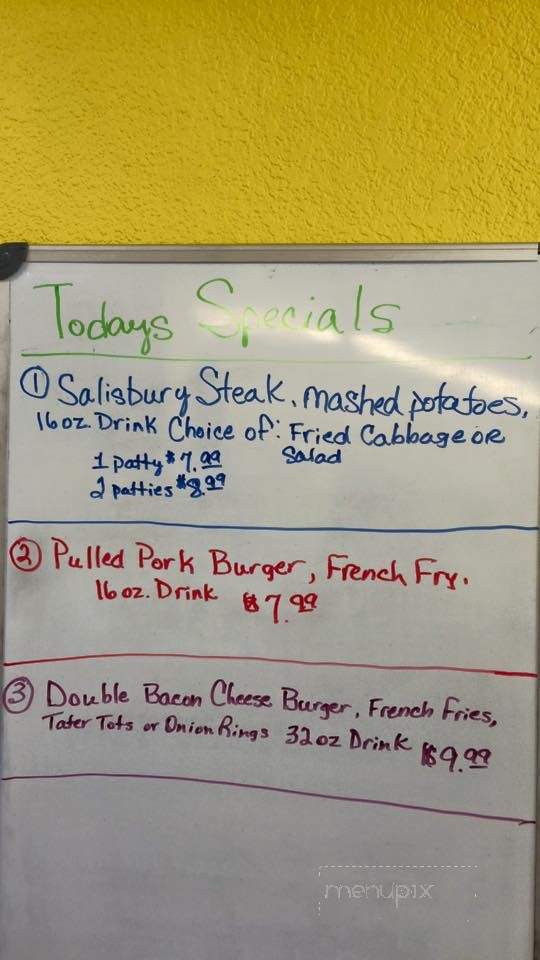 Todays Specials
① Salisbury Steak. mashed potatoes,
16oz. Drink Choice of: Fried Cabbage or
Salad
1 patty $7.99
2 patties $8.99
② Pulled Pork Burger, French Fry.
16 oz. Drink $7.99
③ Double Bacon Cheese Burger, French Fries,
Tater Tots or Onion Rings 32oz Drink $9.99
menupix